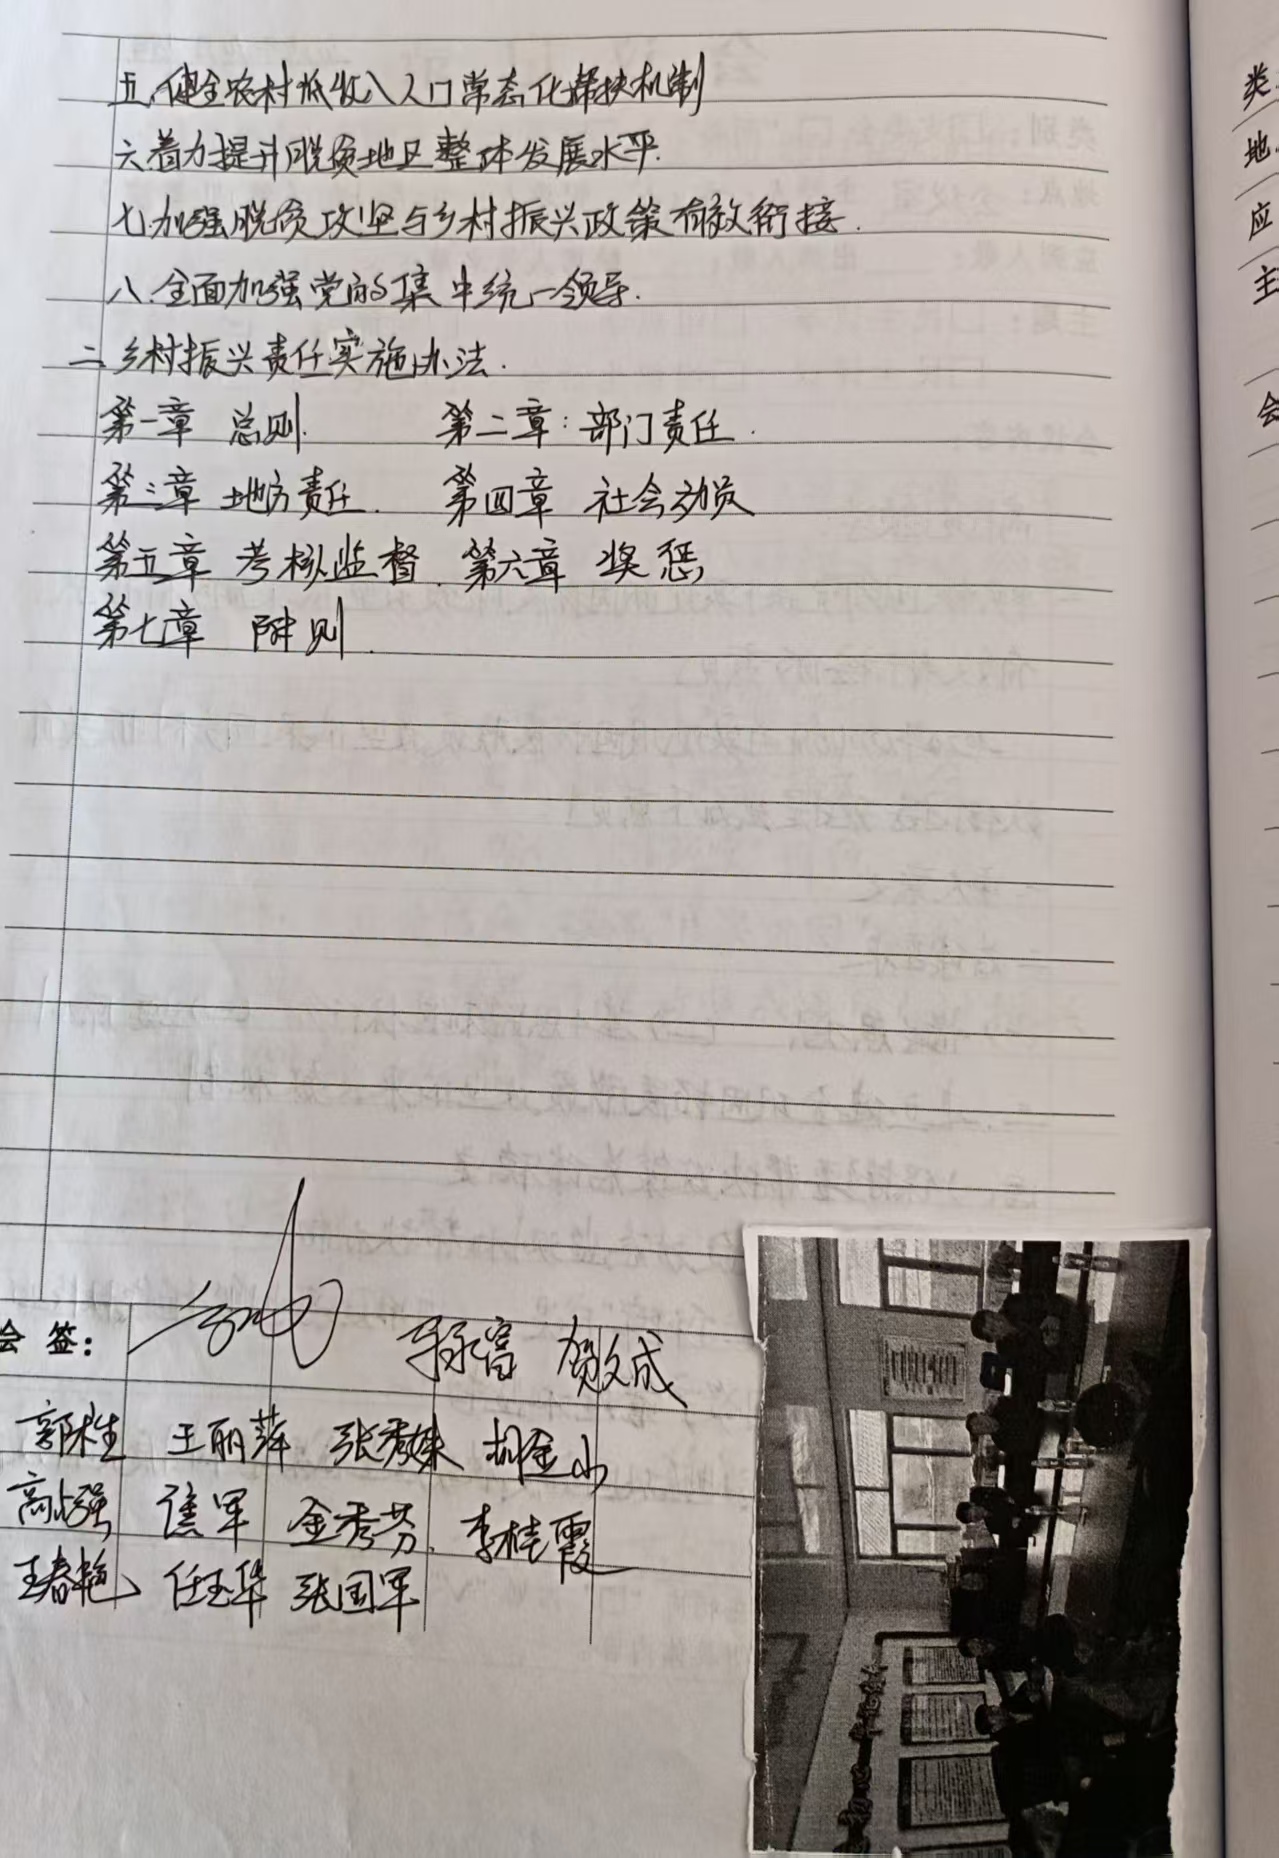 五、健全农村低收入人口常态化帮扶机制
六.着力提升脱贫地区整体发展水平.
七.加强脱贫攻坚与乡村振兴政策有效衔接.
八.全面加强党的集中统一领导.
二、乡村振兴责任实施办法.
第一章 总则. 第二章:部门责任.
第三章 土地方责任. 第四章 社会动员
第五章 考核监督. 第六章 奖惩
第七章 附则.
会 签:
贺文成
王丽萍 张秀妹 胡金小
高占强 谯军 金秀芬. 李桂霞
王春艳、 任玉华 张国军
类
地
应
主
会